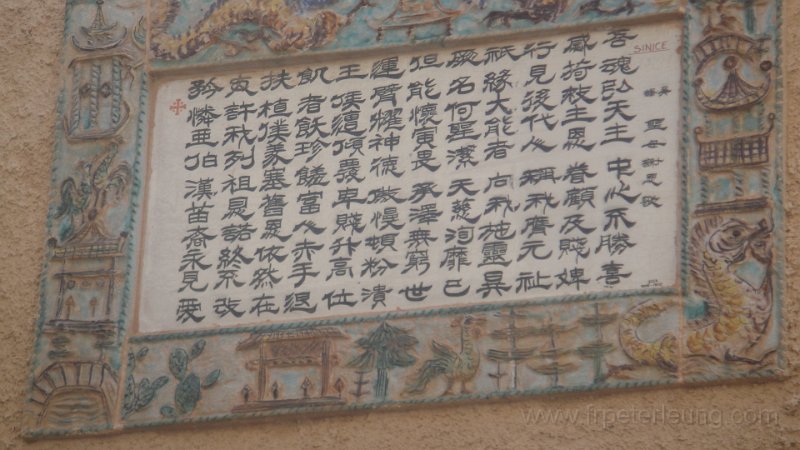 SINICE
聖母謝恩
吾魂弘天主 中心不勝喜
感荷救主恩 眷顧及賤婢
行見後代人 稱我膺元祉
祇緣大能者 向我施靈異
厥名何聖潔 天慈洵靡已
但能懷寅畏 承澤無窮世
運臂耀神德 傲慢頓粉潰
王侯遭傾覆 卑賤升高位
飢者飫珍饈 富人赤手
扶植僕義塞 舊恩依然在
夙許我列祖 恩諾終不改
矜憐亞伯漢 苗裔永見愛
www.frpeterleung.com